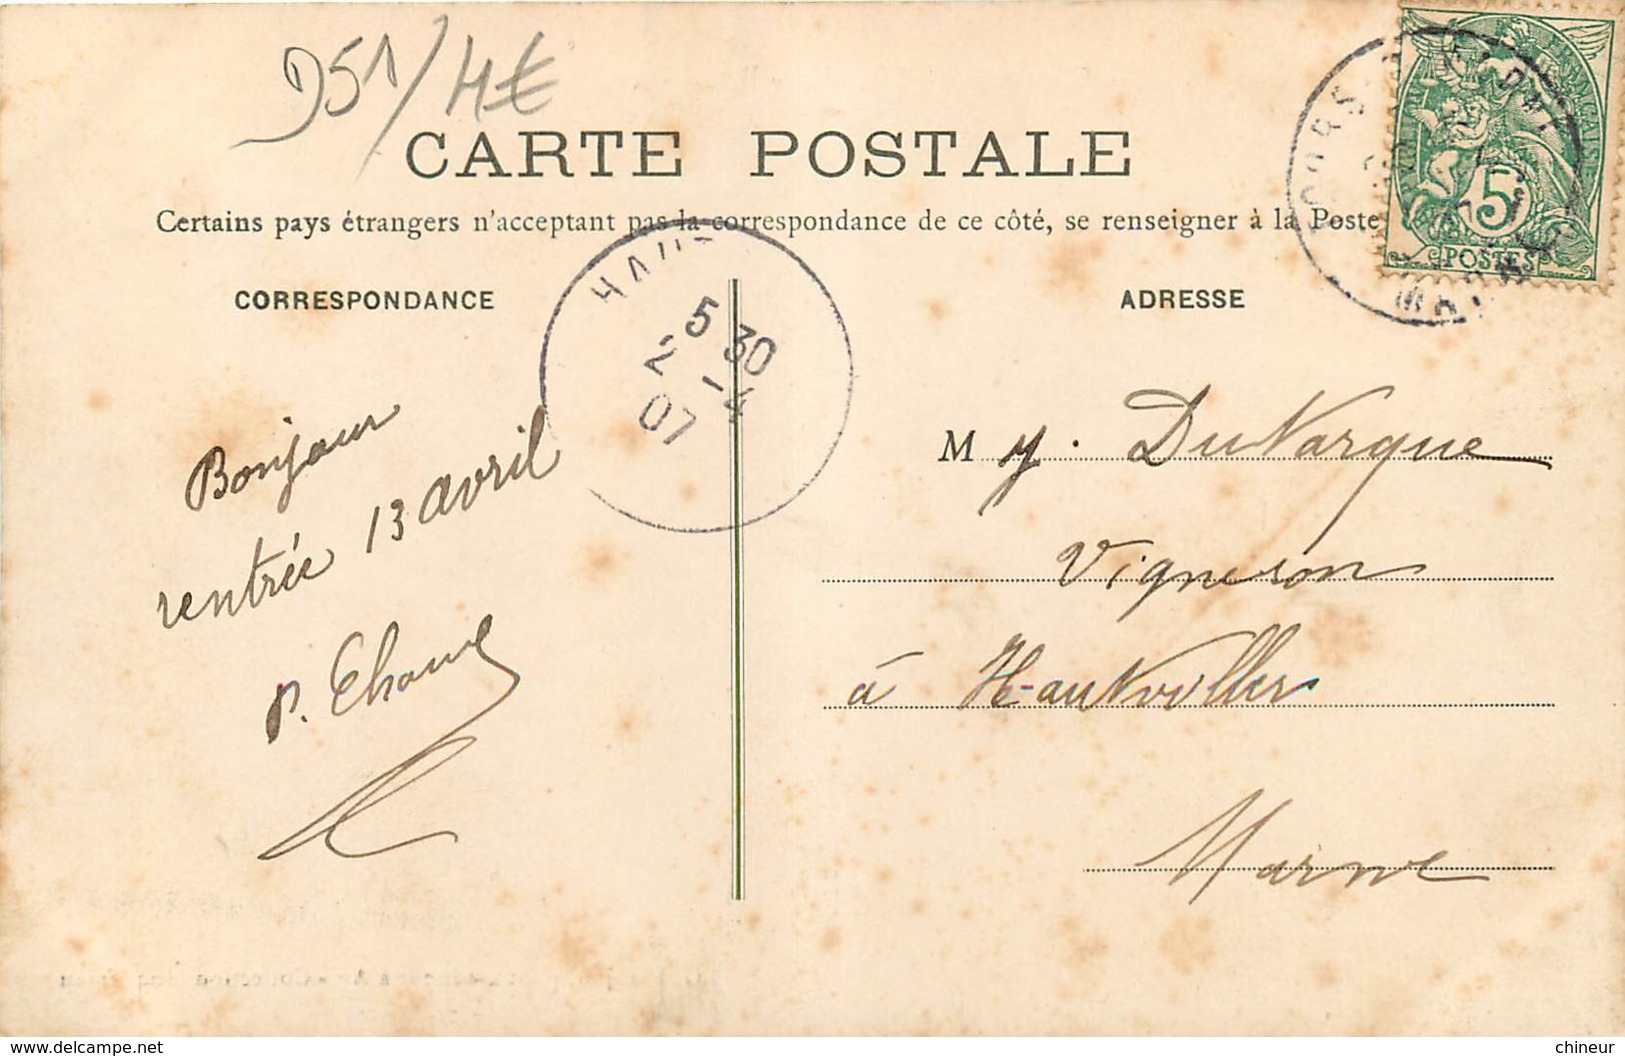 D51/4€
CARTE POSTALE
Certains pays étrangers n'acceptant pas la correspondance de ce côté, se renseigner à la Poste
CORRESPONDANCE
ADRESSE
5
POSTES
HAUT
5 30
2 -4
07
Bonjour
rentrée 13 avril
P.
M
Vigneron
à Hautviller
Marne
MARNE
delcampe.net
chineur